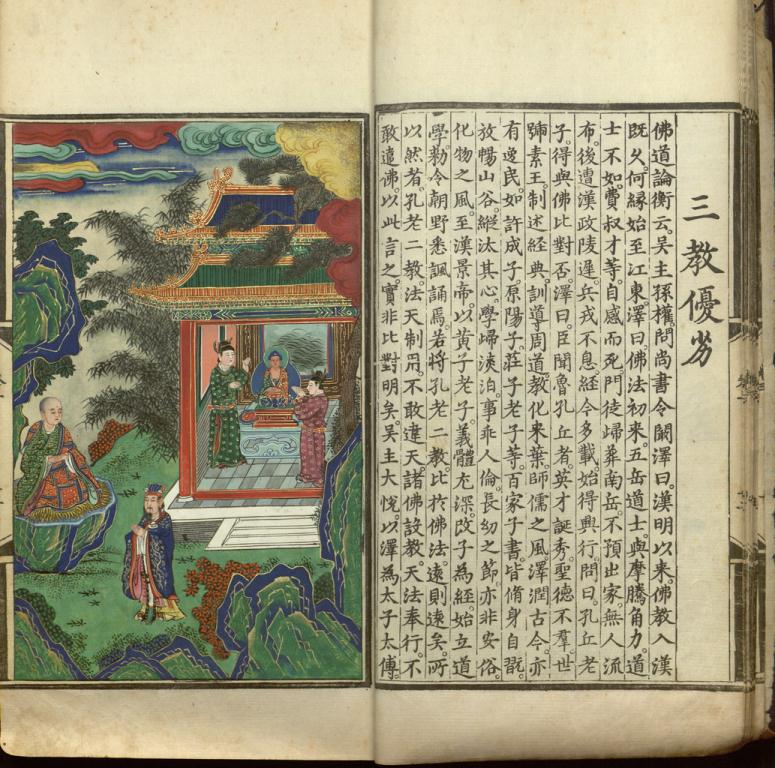 三教優劣
佛道論衡云。吴主孫權問尚書令闞澤曰。漢明以来。佛教入漢
既久。何緣始至江東。澤曰。佛法初来。五岳道士。與摩騰角力。道
士不如。費叔才等。自感而死。門徒歸葬南岳。不預出家。無人流
布。後遭漢政陵遲。兵戎不息。經今多載。始得興行。問曰。孔丘老
子。得與佛比對否。澤曰。臣聞魯孔丘者。英才誕秀。聖德不羣。世
號素王。制述經典。訓導周道。教化来葉。師儒之風。澤潤古今。亦
有逸民。如許成子。原陽子。莊子老子等。百家子書。皆脩身自翫。
放暢山谷。縱汰其心。學歸淡泊。事乖人倫。長幼之節。亦非安俗。
化物之風。至漢景帝。以黃子老子。義體尤深。改子為經。始立道
學。勑令朝野悉諷誦焉。若將孔老二教。比於佛法。遠則遠矣。所
以然者。孔老二教。法天制用。不敢違天。諸佛設教。天法奉行。不
敢違佛。以此言之。實非比對明矣。吴主大悅。以澤為太子太傅。